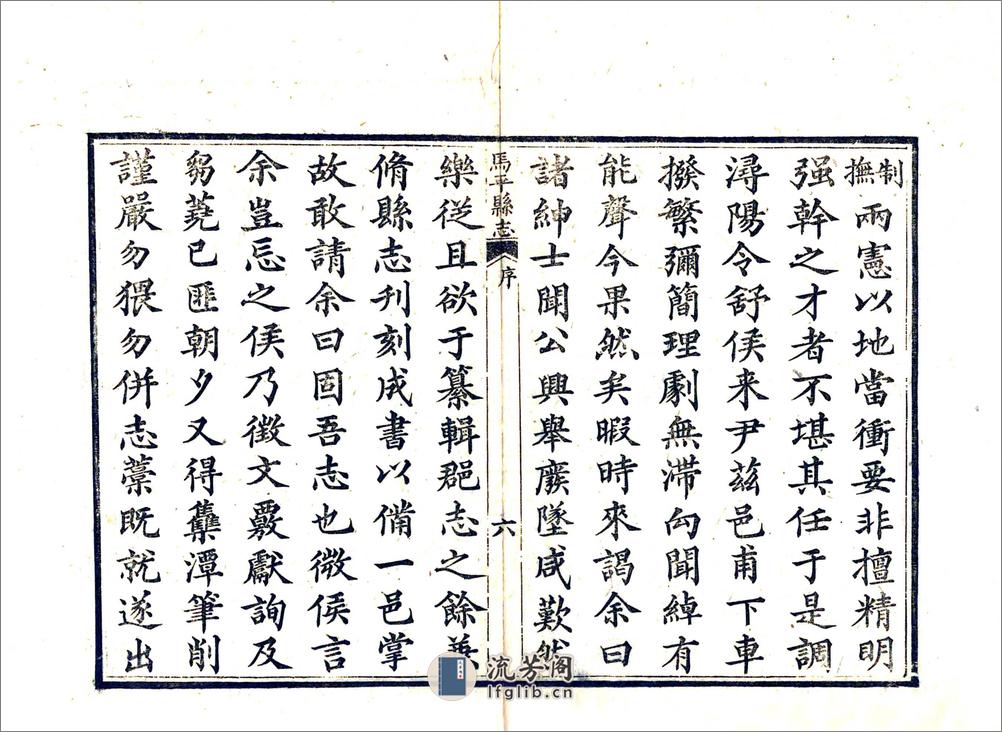 制撫兩憲以地當衝要非擅精明
强幹之才者不堪其任于是調
潯陽令舒侯来尹茲邑甫下車
撥繁彌簡理劇無滞向聞綽有
能聲今果然矣暇時來謁余曰
諸紳士聞公興舉廢墜咸歎然
馬平縣志
序
六
樂從且欲于纂輯郡志之餘兼
脩縣志刋刻成書以備一邑掌
故敢請余曰固吾志也微侯言
余豈忘之侯乃徵文覈獻詢及
芻蕘已匪朝夕又得龔潭筆削
謹嚴勿猥勿併志藁既就遂出
流芳阁
lfglib.cn